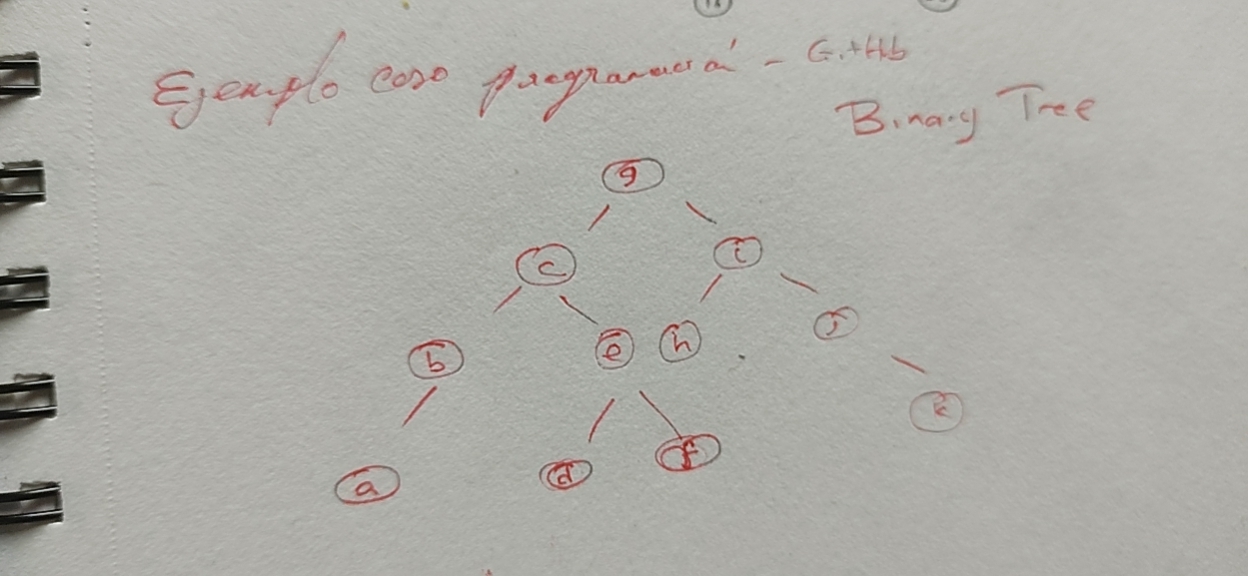 Ejemplo caso programación - GitHub
Binary Tree
g
c i
b e h j
a d f k